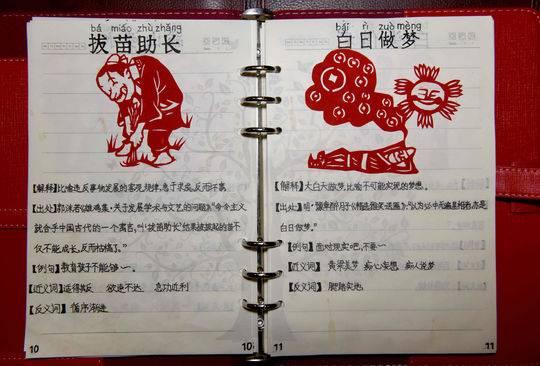 bá miáo zhù zhǎng
拔苗助长
【解释】比喻违反事物发展的客观规律,急于求成,反而坏事
【出处】郭沫若《雄鸡集·关于发展学术与文艺的问题》:“命令主义
就合乎中国古代的一个寓言,叫‘拔苗助长’结果被拔起的苗不
仅不能成长,反而枯槁了。”
【例句】教育孩子不能够~。
【近义词】适得其反 欲速不达 急功近利
【反义词】循序渐进
10
10
bái rì zuò mèng
白日做梦
【解释】大白天做梦,比喻不可能实现的梦想。
【出处】明·豫章醉月子《精选雅笑送匾》:“以为必中而遍体相者亦是
白日做梦。”
【例句】面对现实吧,不要~
【近义词】黄粱美梦 痴心妄想 痴人说梦
【反义词】脚踏实地
11
11